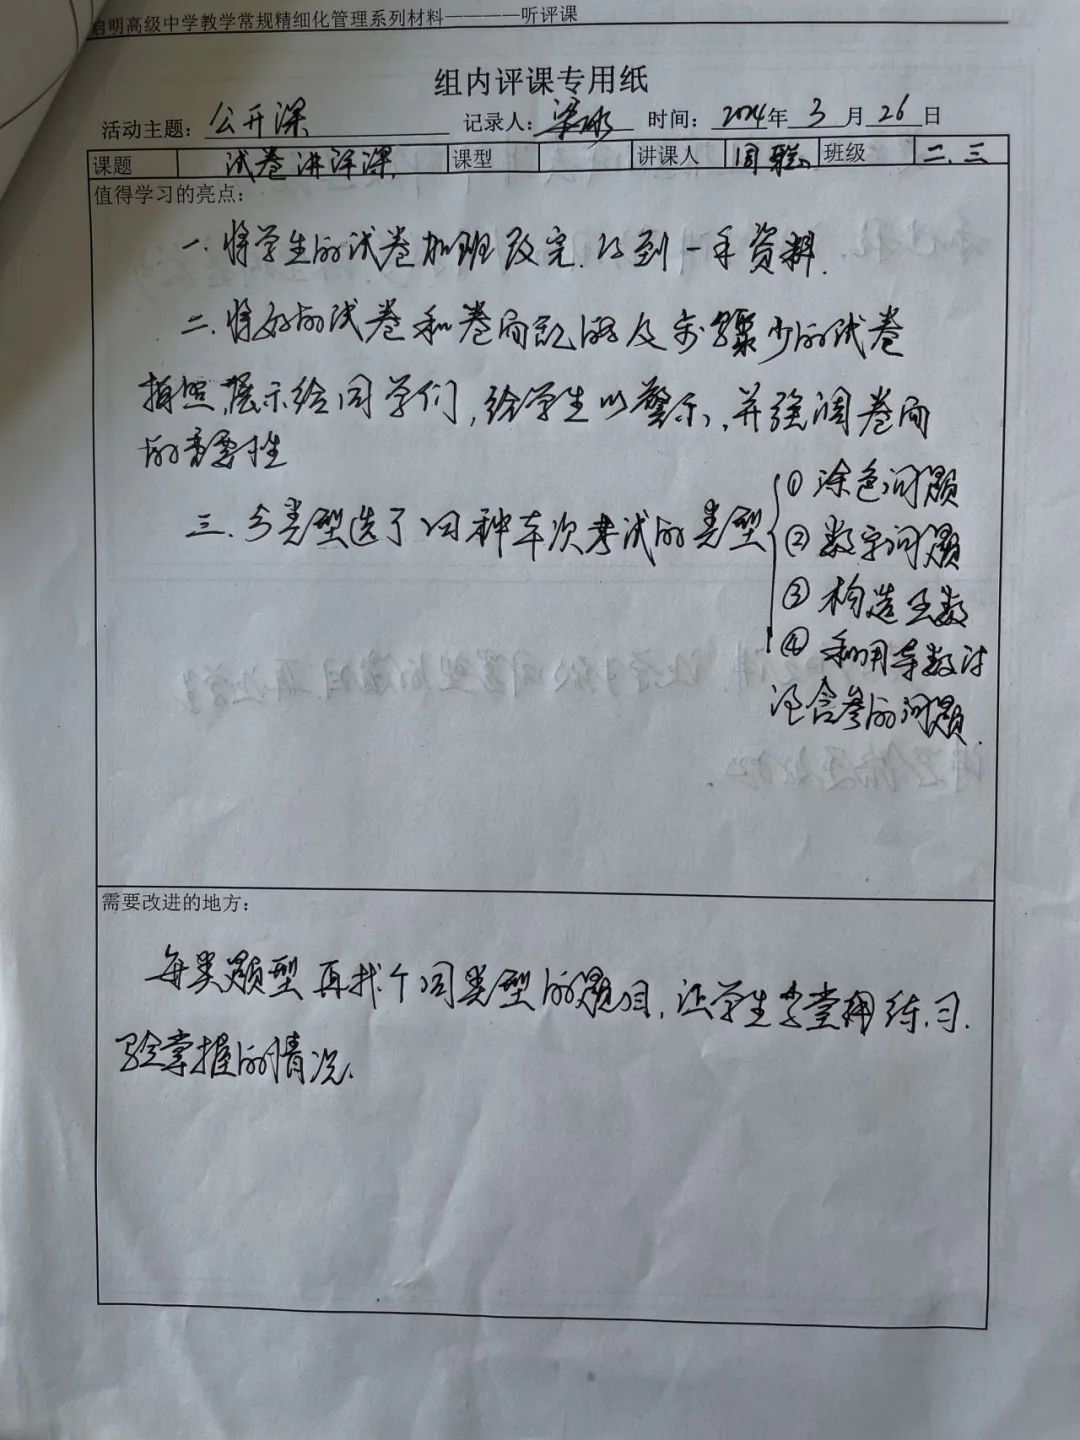 启明高级中学教学常规精细化管理系列材料————听评课
组内评课专用纸
活动主题：公开课 记录人：梁 时间：2024年3月26日
课题 试卷讲评课 课型 讲课人 周 班级 二.三
值得学习的亮点：
一.将学生的试卷加班改完.得到一手资料.
二.将好的试卷和卷面乱的及步骤少的试卷
拍照,展示给同学们,给学生以警示,并强调卷面
的重要性
三.分类型选了四种本次考试的类型
①涂色问题
②数字问题
③构造函数
④利用导数讨
论含参的问题.
需要改进的地方：
每类题型再找个同类型的题目,让学生当堂练习.
验掌握的情况.